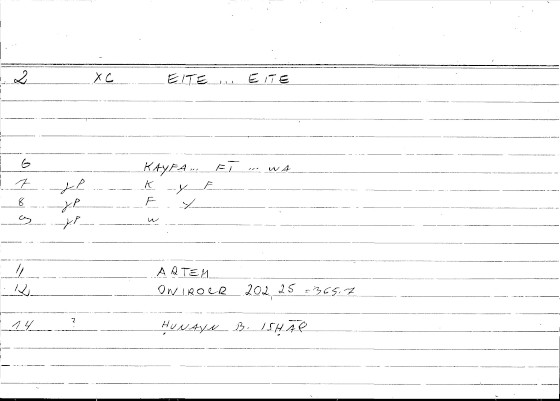 2 XC EITE ... EITE
6 KAYFA... FĪ ... WA
7 γP K γ F
8 γP F γ
9 γP W
11 ARTEM
12 ONIROCR 202, 25 = 365.7
14 ? ḤUNAYN B. ISḤĀQ